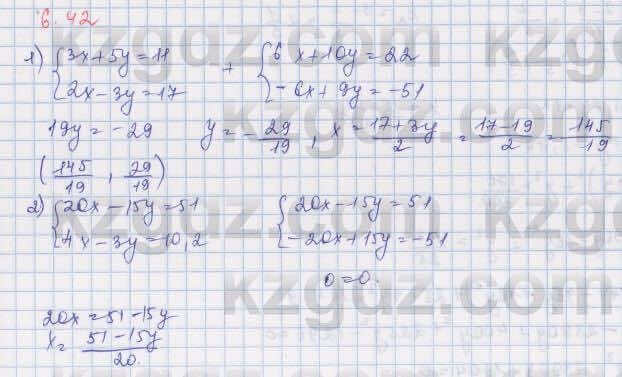 6.42
1) { 3x+5y=11 + { 6x+10y=22
{ 2x-3y=17 { -6x+9y=-51
19y=-29 y=-29/19, x=17+3y/2=17-19/2=145/19
(145/19, 29/19)
2) { 20x-15y=51 { 20x-15y=51
{ 4x-3y=10,2 { -20x+15y=-51
0=0.
20x=51-15y
x=51-15y/20.
kzgdz.com